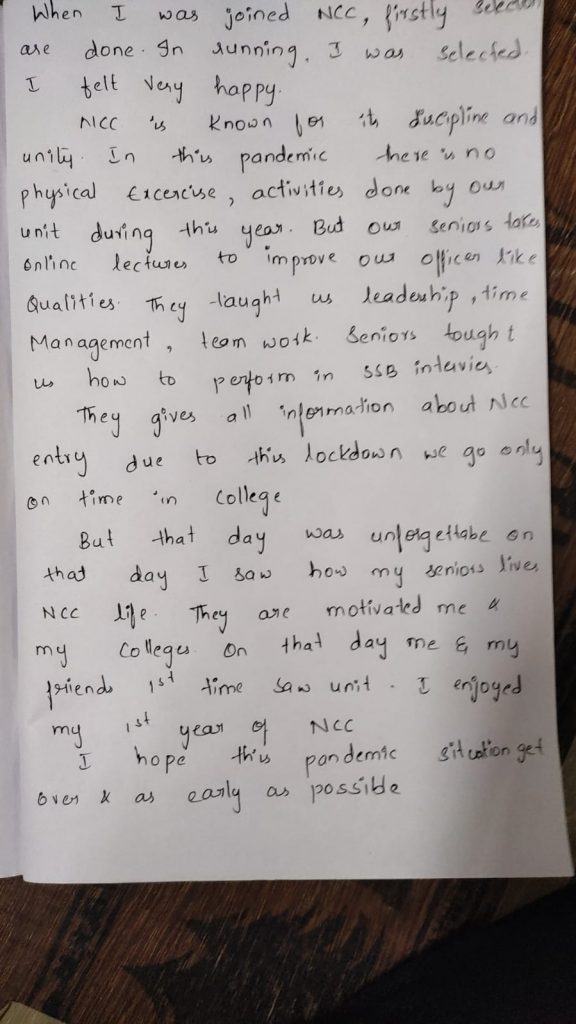 When I was joined NCC, firstly selection
are done. In running, I was selected.
I felt very happy.
NCC is known for its discipline and
unity. In this pandemic there is no
physical Excercise, activities done by our
unit during this year. But our seniors takes
online lectures to improve our officer like
Qualities. They taught us leadership, time
Management, team work. Seniors tought
us how to perform in SSB intervies.
They gives all information about NCC
entry due to this lockdown we go only
on time in college
But that day was unforgettabe on
that day I saw how my seniors lives
NCC life. They are motivated me &
my colleges. On that day me & my
friends 1st time saw unit. I enjoyed
my 1st year of NCC
I hope this pandemic situation get
over & as early as possible